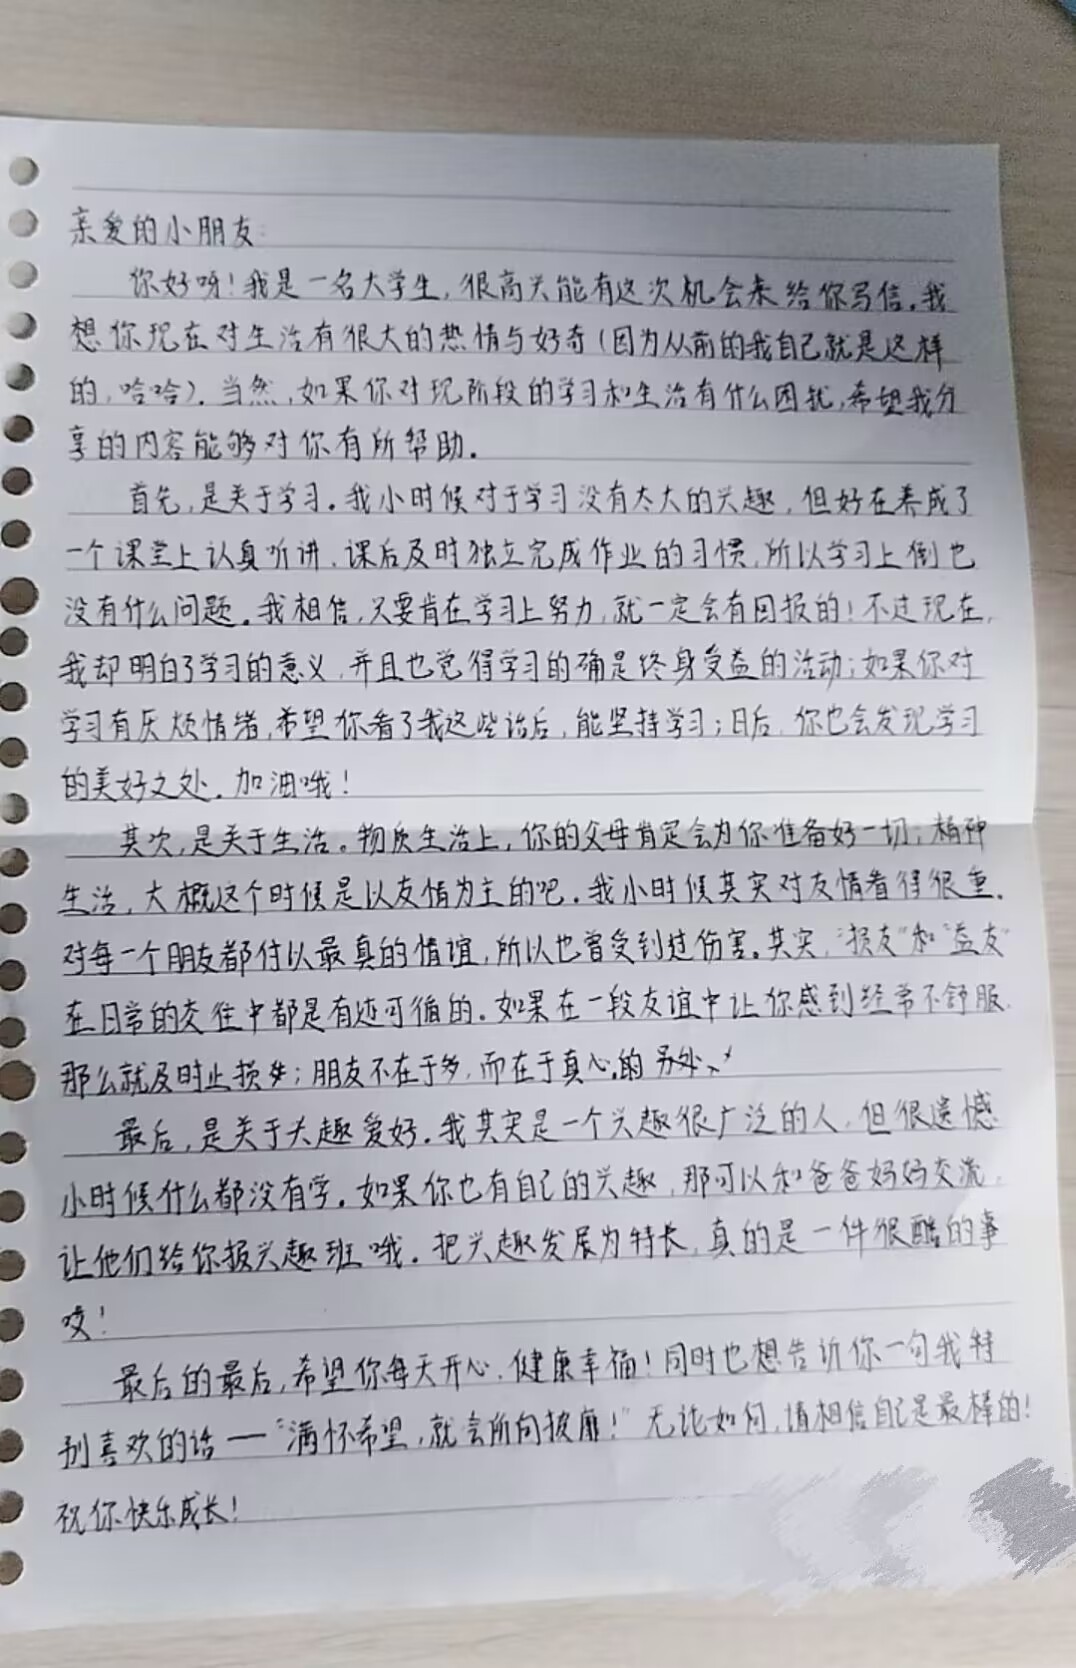 亲爱的小朋友:
你好呀！我是一名大学生，很高兴能有这次机会来给你写信。我
想你现在对生活有很大的热情与好奇(因为从前的我自己就是这样
的，哈哈)。当然，如果你对现阶段的学习和生活有什么困扰，希望我分
享的内容能够对你有所帮助。
首先，是关于学习。我小时候对于学习没有太大的兴趣，但好在养成了
一个课堂上认真听讲、课后及时独立完成作业的习惯，所以学习上倒也
没有什么问题。我相信，只要肯在学习上努力，就一定会有回报的！不过现在，
我却明白了学习的意义，并且也觉得学习的确是终身受益的活动；如果你对
学习有厌烦情绪，希望你看了我这些话后，能坚持学习；日后，你也会发现学习
的美好之处。加油哦！
其次，是关于生活。物质生活上，你的父母肯定会为你准备好一切；精神
生活，大概这个时候是以友情为主的吧。我小时候其实对友情看得很重，
对每一个朋友都付以最真的情谊，所以也曾受到过伤害。其实，“损友”和“益友”
在日常的交往中都是有迹可循的。如果在一段友谊中让你感到经常不舒服，
那么就及时止损失；朋友不在于多，而在于真心的
最后，是关于兴趣爱好。我其实是一个兴趣很广泛的人，但很遗憾
小时候什么都没有学。如果你也有自己的兴趣，那可以和爸爸妈妈交流，
让他们给你报兴趣班哦。把兴趣发展为特长，真的是一件很酷的事
哎！
最后的最后，希望你每天开心、健康幸福！同时也想告诉你一句我特
别喜欢的话——“满怀希望，就会所向披靡！”无论如何，请相信自己是最棒的！
祝你快乐成长！